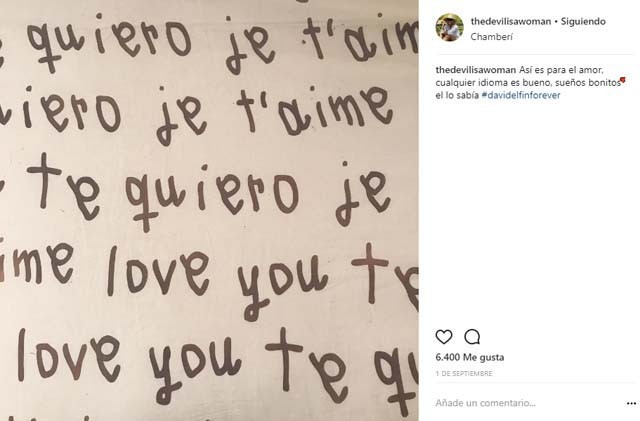 quiero je t'aim
iero je t'aime
te quiero je
ime love you te
love you te qu
thedevilisawoman • Siguiendo
Chamberí
thedevilisawoman Así es para el amor,
cualquier idioma es bueno, sueños bonitos
el lo sabía #davidelfinforever
6.400 Me gusta
1 DE SEPTIEMBRE
Añade un comentario...